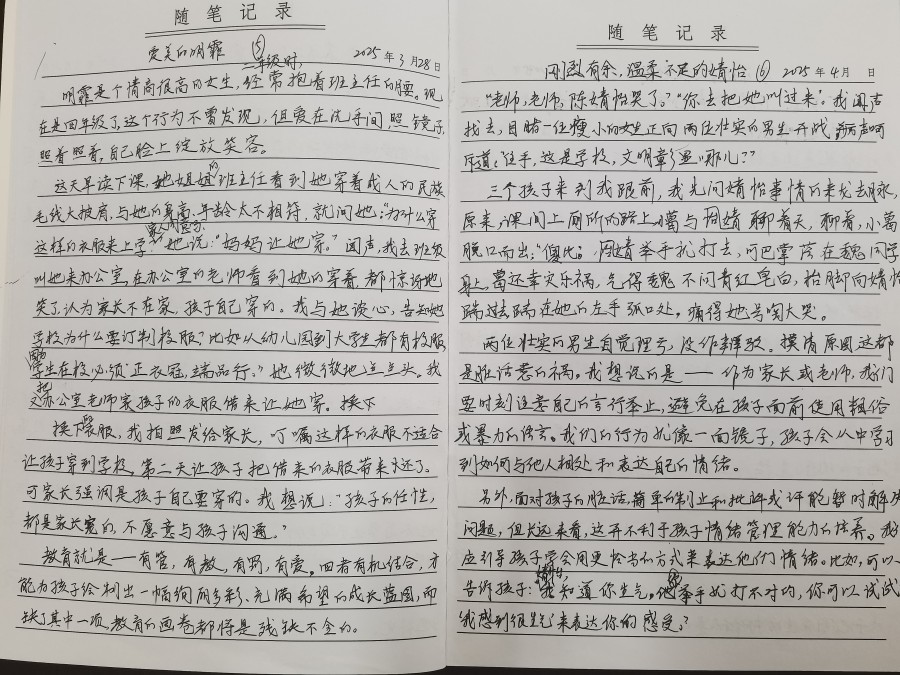 随笔记录
爱美的明霏 ⑤ 2025年3月28日
二年级时,
明霏是个情商很高的女生,经常抱着班主任的腰。现
在是四年级了,这个行为不曾发现,但爱在洗手间,照镜子,
照着照着,自己脸上绽放笑容。
这天早读下课,她姐姐的班主任看到她穿着成人的民族
毛线大披肩,与她的身高、年龄太不相符,就问她:“为什么穿
这样的衣服来上学?”她说:“妈妈让她穿。”闻声,我去班级
叫她来办公室,在办公室的老师看到她的穿着,都惊讶地
笑了,认为家长不在家,孩子自己穿的。我与她谈心,告知她
学校为什么要订制校服?比如从幼儿园到大学生都有校服,
学生在校必须“正衣冠,端品行。”她微微地点点头。我
把办公室老师家孩子的衣服借来让她穿。换下
换下衣服,我拍照发给家长,叮嘱这样的衣服不适合
让孩子穿到学校,第二天让孩子把借来的衣服带来还了。
可家长强调是孩子自己要穿的。我想说:“孩子的任性,
都是家长宠的,不愿意与孩子沟通。”
教育就是——有管,有教,有罚,有爱。四者有机结合,才
能为孩子绘制出一幅绚丽多彩、充满希望的成长蓝图,而
缺了其中一项,教育的画卷都将是残缺不全的。
随笔记录
刚烈有余,温柔不足的婧怡 ⑥ 2025年4月 日
“老师,老师,陈婧怡哭了。”“你去把她叫过来。”我闻声
找去,目睹一位瘦小的女生正向两位壮实的男生开战,
道:“住手,这是学校,文明彰显哪儿?”
三个孩子来到我跟前,我先问婧怡事情的来龙去脉,
原来,课间上厕所的路上,葛与周婧聊着天,聊着,小葛
脱口而出,“傻比”,周婧举手扎打去,可巴掌落在魏同学
身上,葛还幸灾乐祸,气得魏不问青红皂白,抬脚向婧怡
踹过去踹在她的左手弧口处,痛得她号啕大哭。
两位壮实的男生自觉理亏,没作辩驳。摸清原因这都
是脏话惹的祸。我想说的是——作为家长或老师,我们
要时刻注意自己的言行举止,避免在孩子面前使用粗俗
或暴力的语言。我们的行为就像一面镜子,孩子会从中学习
到如何与他人相处和表达自己的情绪。
另外,面对孩子的脏话,简单的制止和批评或许能暂时解决
问题,但长远来看,这并不利于孩子情绪管理能力的培养。我
应引导孩子学会用更恰当的方式来表达他们情绪。比如,可以
告诉孩子:“我知道你生气,举手扎打不对的,你可以试试
‘我感到很生气’来表达你的感受。”